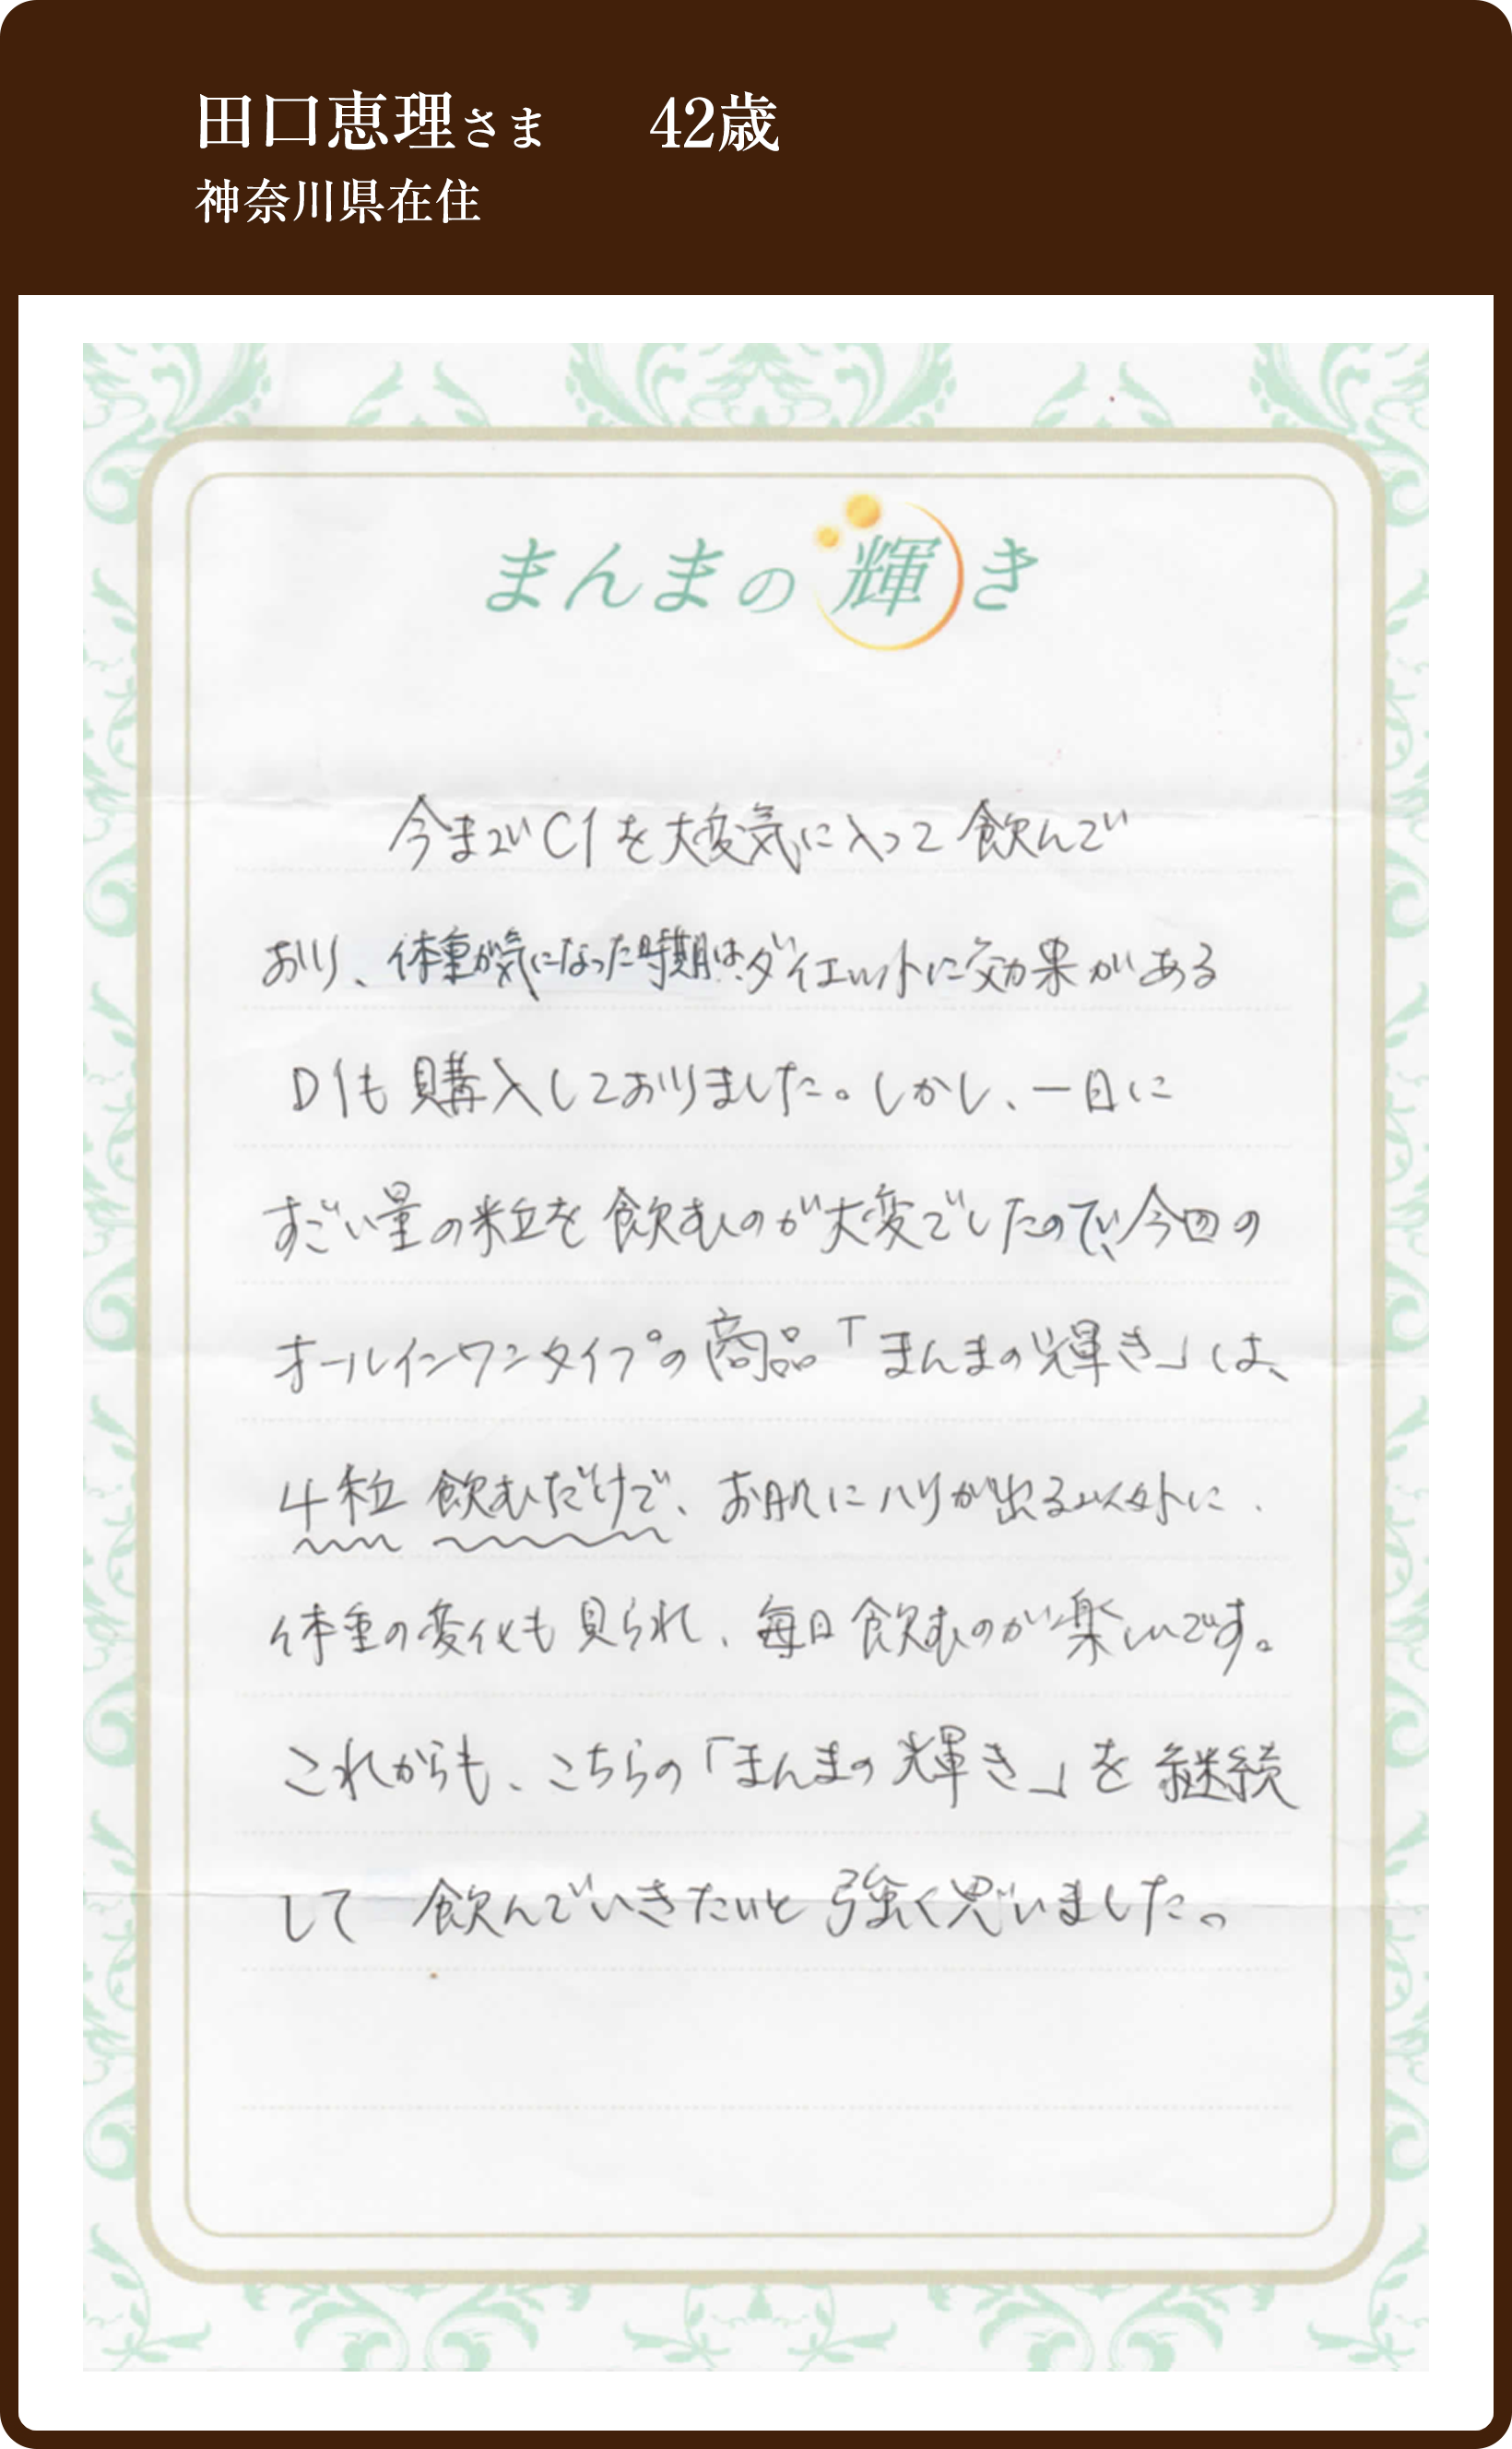 田口恵理さま 42歳
神奈川県在住
まんまの輝き
今までC1を大変気に入って飲んで
おり、体重が気になった時期は、ダイエットに効果がある
D1も購入しておりました。しかし、一日に
すごい量の粒を飲むのが大変でしたので、今回の
オールインワンタイプの商品「まんまの輝き」は、
4粒 飲むだけで、お肌にハリが出る以外に、
体重の変化も見られ、毎日飲むのが楽しいです。
これからも、こちらの「まんまの輝き」を継続
して 飲んでいきたいと強く思いました。